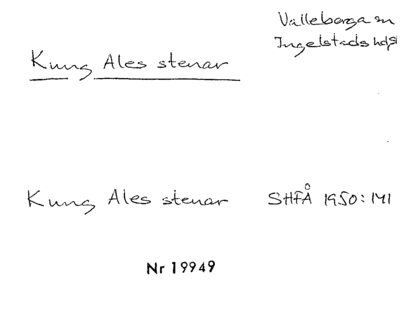 Valleberga sn
Ingelstads hds
Kung Ales stenar
Kung Ales stenar SHFÅ 1950:141
Nr 19949